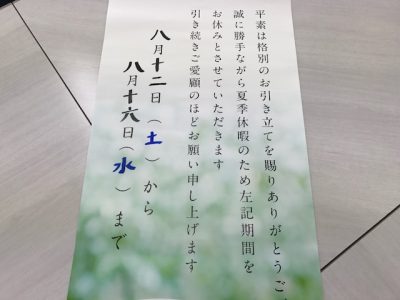 平素は格別のお引き立てを賜りありがとうご
誠に勝手ながら夏季休暇のため左記期間を
お休みとさせていただきます
引き続きご愛顧のほどお願い申し上げます
八月十二日(土)から
八月十六日(水)まで